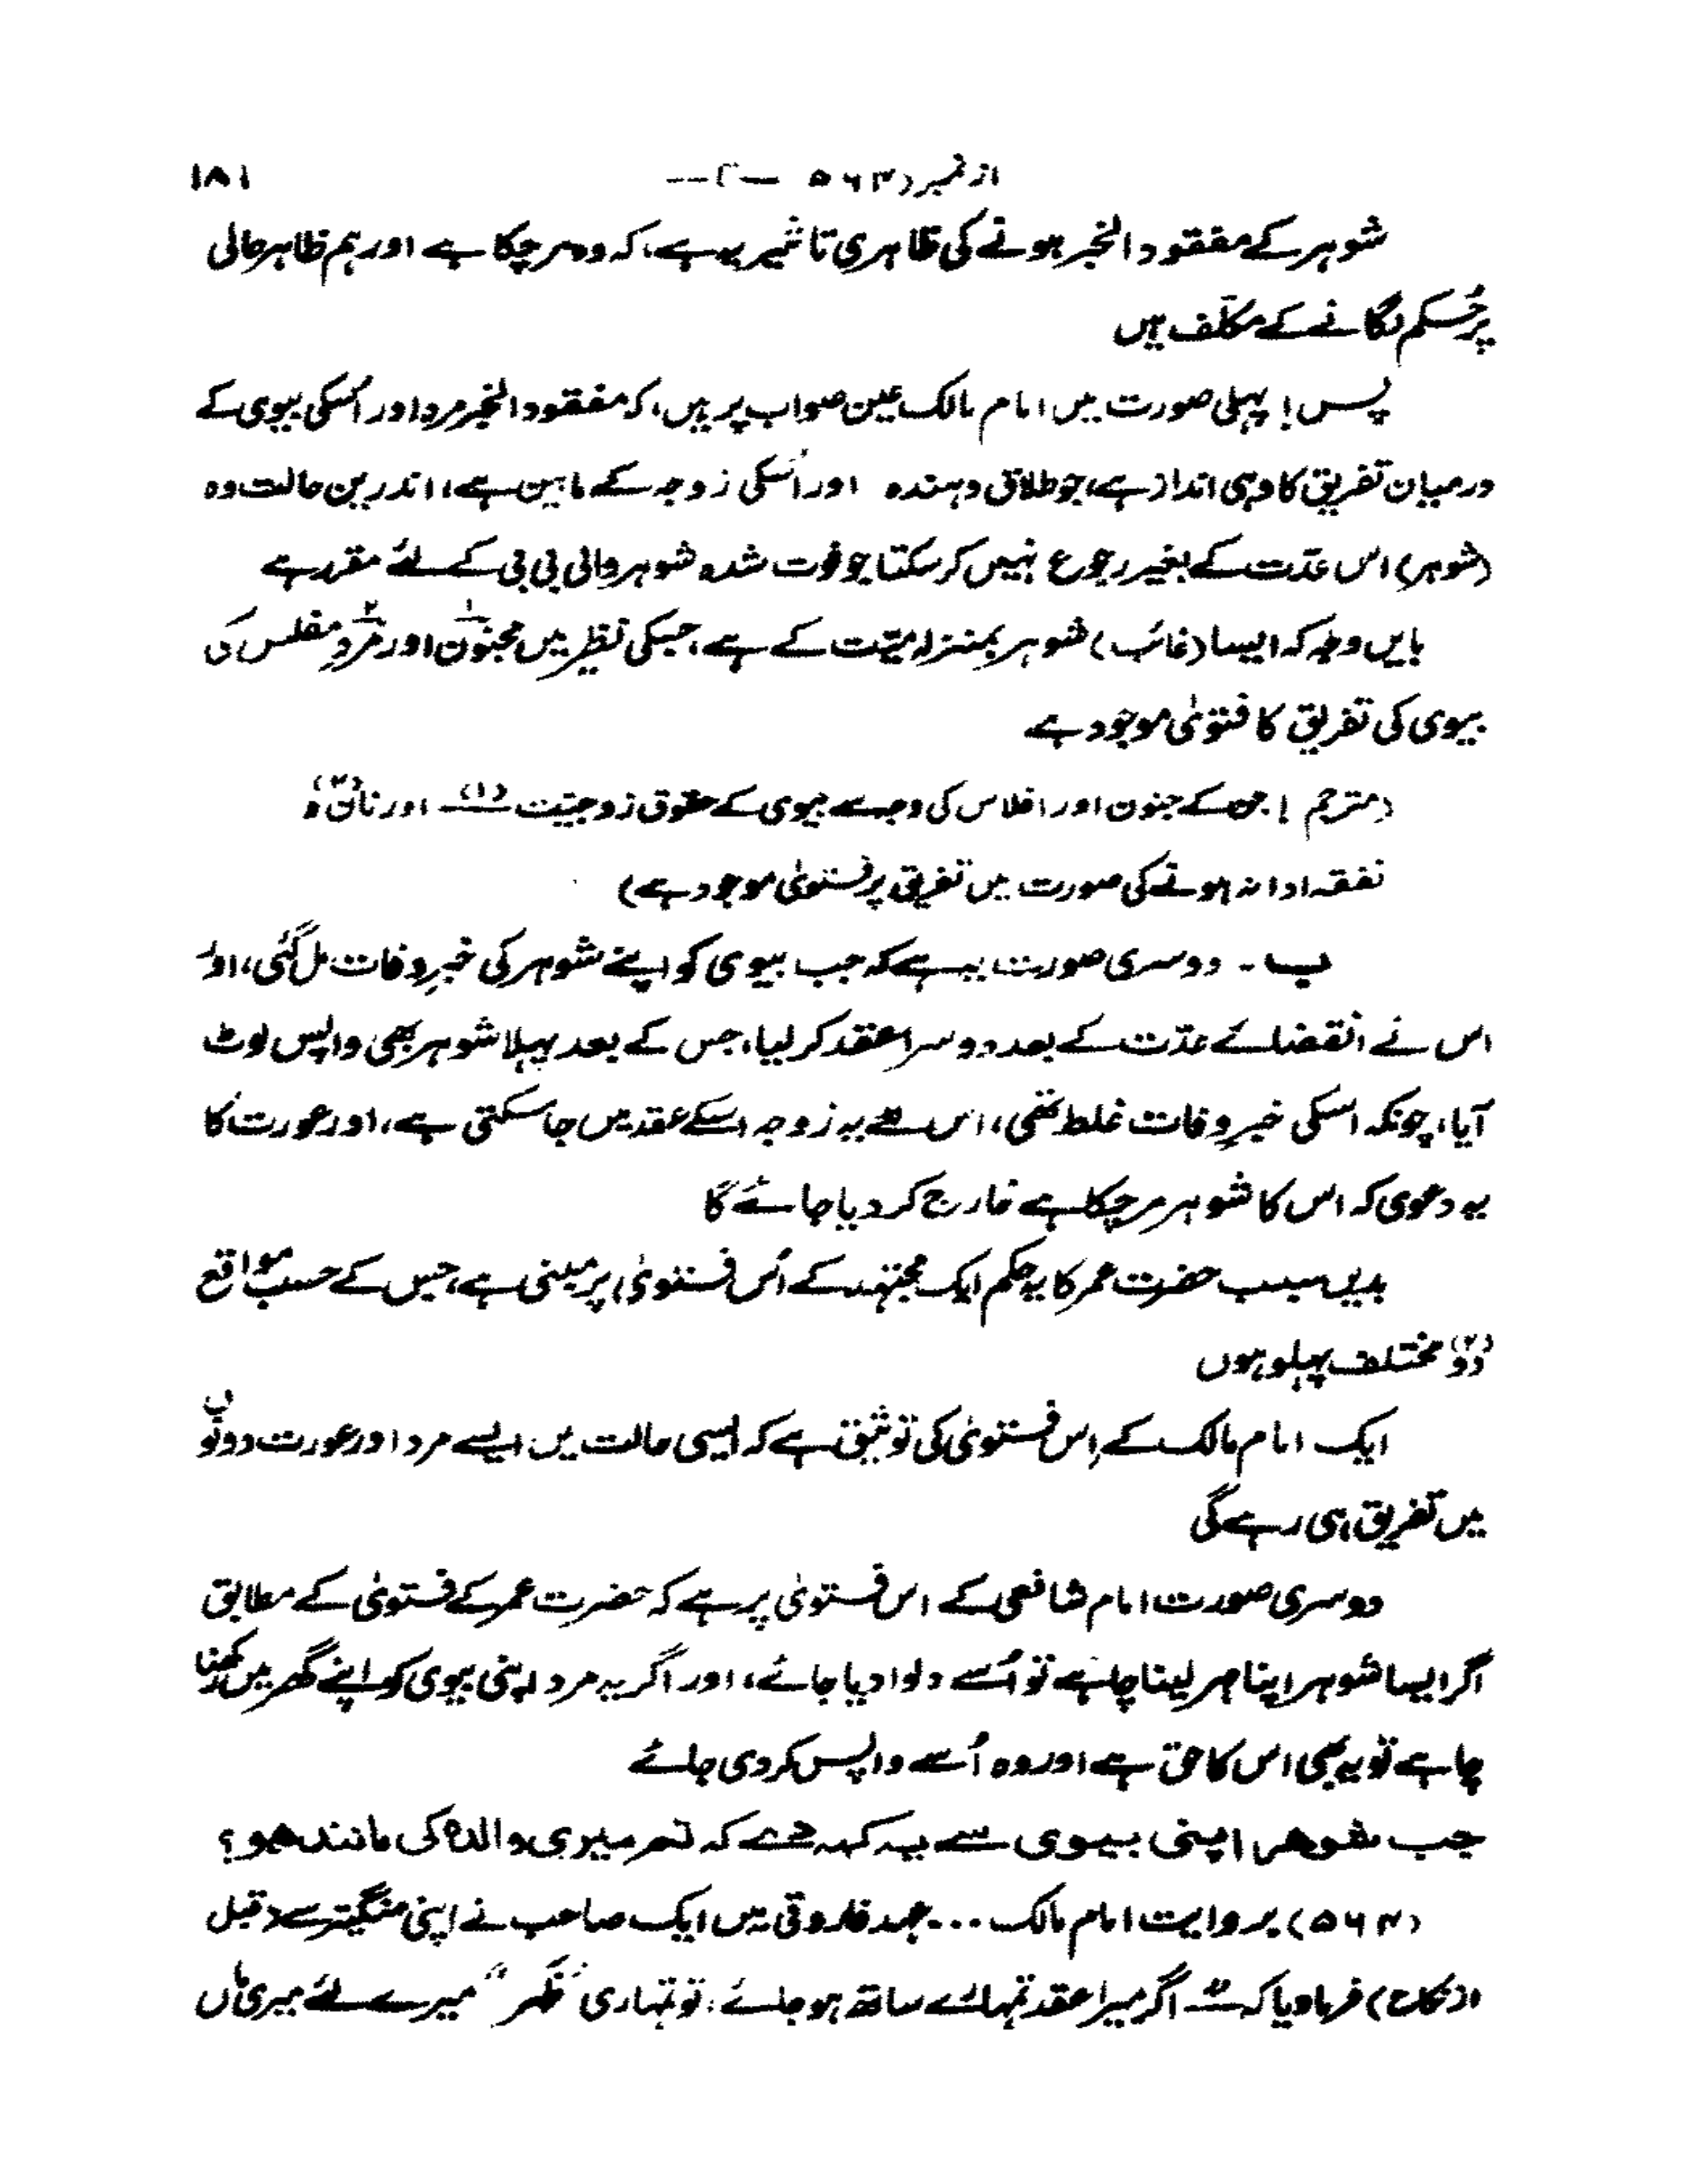 از نمبر (۵۶۳ — ۲ —
۱۸۱
شوہر کے مفقود الخبر ہونے کی ظاہری تاثیر یہ ہے، کہ وہ مر چکا ہے اور ہم ظاہر حالی
پر حُکم لگانے کے مکلّف ہیں
پس! پہلی صورت میں امام مالک عین صواب پر ہیں، کہ مفقود الخبر مرد اور اُسکی بیوی کے
درمیان تفریق کا وہی انداز ہے، جو طلاق دہندہ اور اُسکی زوجہ کے مابین ہے، اندرین حالت وہ
(شوہر) اس عدّت کے بغیر رجوع نہیں کر سکتا جو فوت شدہ شوہر والی بی بی کے لئے مقرر ہے
بایں وجہ کہ ایسا (غائب) شوہر بمنزلہ میّت کے ہے، جسکی نظیر میں مجنون۱ اور مردِ۲ مفلس کی
بیوی کی تفریق کا فتویٰ موجود ہے
(مترجم! جن کے جنون اور افلاس کی وجہ سے بیوی کے حقوق زوجیّت (۱) اور نان (۲) و
نفقہ ادا نہ ہونے کی صورت میں تفریق پر فتویٰ موجود ہے)
ب ۔ دوسری صورت یہ ہے کہ جب بیوی کو اپنے شوہر کی خبرِ وفات مل گئی، اور
اس نے انقضائے عدّت کے بعد دوسرا عقد کر لیا، جس کے بعد پہلا شوہر بھی واپس لوٹ
آیا، چونکہ اسکی خبرِ وفات غلط تھی، اس لئے یہ زوجہ اسکے عقد میں جا سکتی ہے، اور عورت کا
یہ دعویٰ کہ اس کا شوہر مر چکا ہے خارج کر دیا جائے گا
بدیں سبب حضرت عمر کا یہ حکم ایک مجتہد کے اُس فتویٰ پر مبنی ہے، جس کے حسب مواقع
دو (۲) مختلف پہلو ہوں
ایک امام مالک کے اِس فتویٰ کی توثیق ہے کہ ایسی حالت میں ایسے مرد اور عورت دونوں
میں تفریق ہی رہے گی
دوسری صورت امام شافعی کے اس فتویٰ پر ہے کہ حضرت عمر کے فتویٰ کے مطابق
اگر ایسا شوہر اپنا مہر لینا چاہے تو اُسے دلوا دیا جائے، اور اگر یہ مرد اپنی بیوی کو اپنے گھر میں رکھنا
چاہے تو یہ بھی اس کا حق ہے اور وہ اُسے واپس کر دی جائے
جب شوھر اپنی بیوی سے یہ کہہ دے کہ تم میری والدہ کی مانند ھو؟
(۵۶۴) بروایت امام مالک ... عہد فاروقی میں ایک صاحب نے اپنی منگیتر سے (قبل
از نکاح) فرما دیا کہ اگر میرا عقد تمہارے ساتھ ہو جائے، تو تمہاری "ظَہر" میرے لئے میری ماں